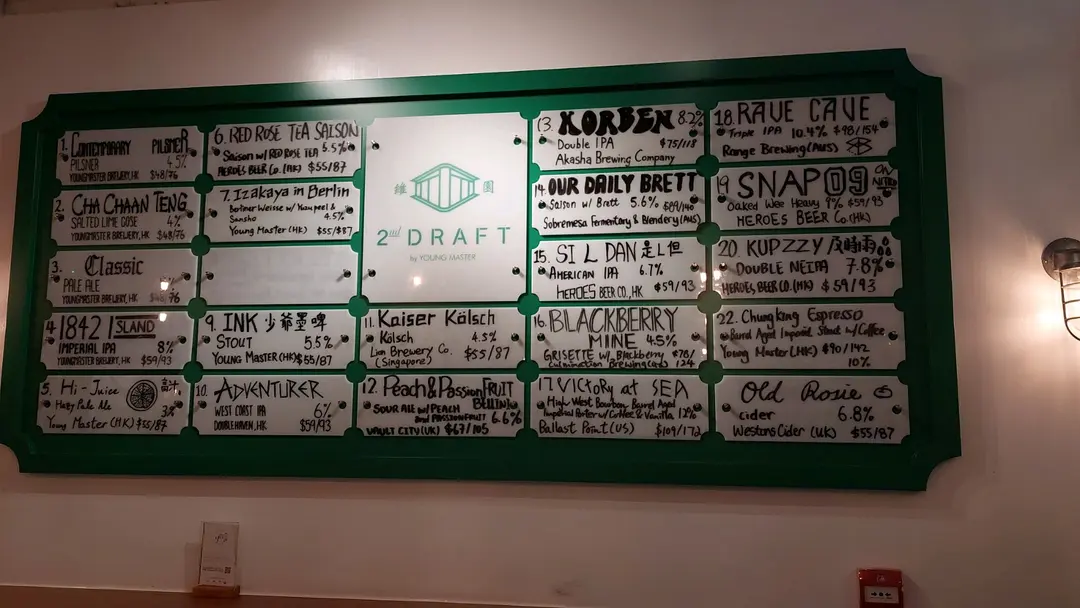 1. CONTEMPORARY PILSNER
PILSNER 4.5%
YOUNGMASTER BREWERY, HK $48/76
2. CHA CHAAN TENG
SALTED LIME GOSE 4%
YOUNGMASTER BREWERY, HK $48/76
3. Classic
PALE ALE
YOUNGMASTER BREWERY, HK 76
4. 1842 ISLAND
IMPERIAL IPA 8%
YOUNGMASTER BREWERY, HK $59/93
5. Hi-Juice
Hazy Pale Ale
Young Master (HK) $55/87
6. RED ROSE TEA SAISON
Saison w/ RED ROSE TEA 5.5%
HEROES BEER Co. (HK) $55/87
7. Izakaya in Berlin
Berliner Weisse w/ Kaupeel &
Sansho 4.5%
Young Master (HK) $55/$87
9. INK 少爺墨啤
STOUT 5.5%
YOUNG MASTER (HK) $55/87
10. ADVENTURER
WEST COAST IPA 6%
DOUBLE HAVEN, HK $59/93
維園
2nd DRAFT
by YOUNG MASTER
11. Kaiser Kölsch
Kölsch 4.5%
Lion Brewery Co. $55/87
(Singapore)
12. Peach & Passion FRUIT
BELLINI
SOUR ALE w/ PEACH
and PASSIONFRUIT 6.6%
VAULT CITY (UK) $67/105
13. KORBEN 8.2%
Double IPA $75/118
Akasha Brewing Company
14. OUR DAILY BRETT
Saison w/ Brett 5.6% $89/140
Sobremesa Fermentary & Blendery (AUS)
15. SI L DAN 走L但
AMERICAN IPA 6.7%
HEROES BEER CO., HK $59/93
16. BLACKBERRY
MIINE 4.5%
GRISETTE w/ Blackberry $78/
Culmination Brewing 124
17. VICTORY at SEA
High West Bourbon Barrel Aged
Imperial Porter w/ Coffee & Vanilla 12%
Ballast Point (US) $109/172
18. RAVE CAVE
Triple IPA 10.4% $98/154
Range Brewing (AUS)
19. SNAP 09 ON NITRO
Oaked Wee Heavy 9% $59/93
HEROES BEER Co. (HK)
20. KUPZZY 及時雨
DOUBLE NEIPA 7.8%
HEROES BEER CO. (HK) $59/93
22. Chungking Espresso
Barrel Aged Imperial Stout w/ Coffee
Young Master (HK) $90/142
10%
Old Rosie
Cider 6.8%
Westons Cider (UK) $55/87